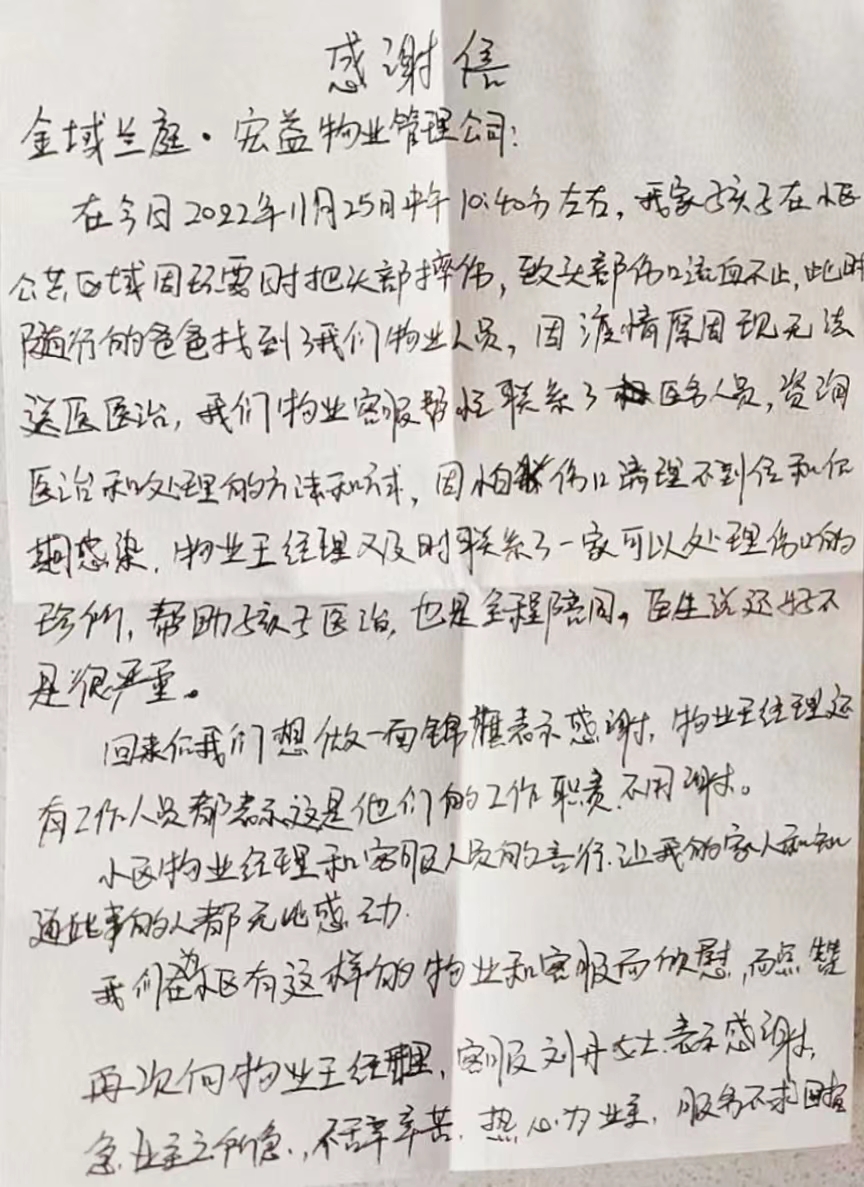 感谢信
金域兰庭·宏益物业管理公司:
在今日2022年11月25日中午10:40分左右,我家孩子在小区
公共区域因玩耍时把头部摔伤,致头部伤口流血不止,此时
随行的爸爸找到了我们物业人员,因疫情原因现无法
送医医治,我们物业客服帮忙联系了医务人员,资询
医治和处理的方法和方式,因怕伤口清理不到位和后
期感染,物业王经理又及时联系了一家可以处理伤口的
珍所,帮助孩子医治,也是全程陪同。医生说还好不
是很严重。
回来后我们想做一面锦旗表示感谢,物业王经理还
有工作人员都表示这是他们的工作职责不用谢。
小区物业经理和客服人员的善行.让我的家人和知
道此事的人都无比感动.
我们为小区有这样的物业和客服而欣慰,而点赞
再次向物业王经理,客服刘丹女士.表示感谢,
急业主之所急.,不辞辛苦.热心为业主.服务不求回报